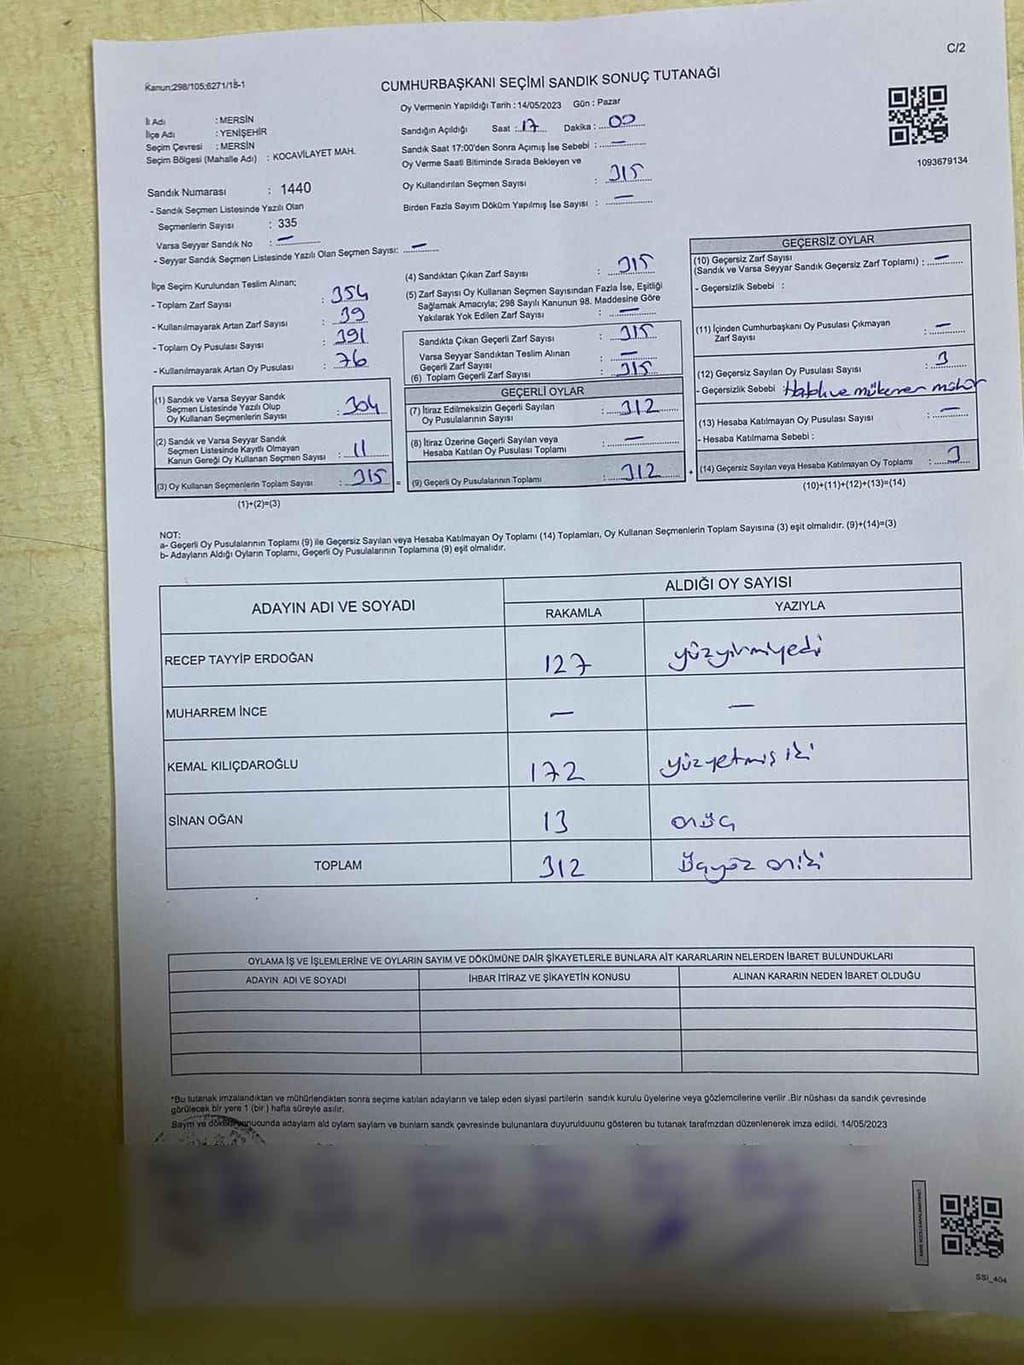 C/2
Kanun:298/105;6271/18-1
CUMHURBAŞKANI SEÇİMİ SANDIK SONUÇ TUTANAĞI
Oy Vermenin Yapıldığı Tarih : 14/05/2023 Gün : Pazar
İl Adı : MERSİN
İlçe Adı : YENİŞEHİR
Seçim Çevresi : MERSİN
Seçim Bölgesi (Mahalle Adı) : KOCAVİLAYET MAH.
Sandığın Açıldığı Saat : 17 Dakika : 00
Sandık Saat 17:00'den Sonra Açımış İse Sebebi : —
Oy Verme Saati Bitiminde Sırada Bekleyen ve
Oy Kullandırılan Seçmen Sayısı : 315
Birden Fazla Sayım Döküm Yapılmış İse Sayısı : —
1093679134
Sandık Numarası : 1440
- Sandık Seçmen Listesinde Yazılı Olan
Seçmenlerin Sayısı : 335
Varsa Seyyar Sandık No : —
- Seyyar Sandık Seçmen Listesinde Yazılı Olan Seçmen Sayısı: —
İlçe Seçim Kurulundan Teslim Alınan;
- Toplam Zarf Sayısı : 354
- Kullanılmayarak Artan Zarf Sayısı : 39
- Toplam Oy Pusulası Sayısı : 391
- Kullanılmayarak Artan Oy Pusulası : 76
(1) Sandık ve Varsa Seyyar Sandık
Seçmen Listesinde Yazılı Olup
Oy Kullanan Seçmenlerin Sayısı : 304
(2) Sandık ve Varsa Seyyar Sandık
Seçmen Listesinde Kayıtlı Olmayan
Kanun Gereği Oy Kullanan Seçmen Sayısı : 11
(3) Oy Kullanan Seçmenlerin Toplam Sayısı : 315 =
(1)+(2)=(3)
(4) Sandıktan Çıkan Zarf Sayısı : 315
(5) Zarf Sayısı Oy Kullanan Seçmen Sayısından Fazla İse, Eşitliği
Sağlamak Amacıyla; 298 Sayılı Kanunun 98. Maddesine Göre
Yakılarak Yok Edilen Zarf Sayısı : —
Sandıkta Çıkan Geçerli Zarf Sayısı : 315
Varsa Seyyar Sandıktan Teslim Alınan
Geçerli Zarf Sayısı : —
(6) Toplam Geçerli Zarf Sayısı : 315
GEÇERLİ OYLAR
(7) İtiraz Edilmeksizin Geçerli Sayılan
Oy Pusulalarının Sayısı : 312
(8) İtiraz Üzerine Geçerli Sayılan veya
Hesaba Katılan Oy Pusulası Toplamı : —
(9) Geçerli Oy Pusulalarının Toplamı : 312 +
GEÇERSİZ OYLAR
(10) Geçersiz Zarf Sayısı
(Sandık ve Varsa Seyyar Sandık Geçersiz Zarf Toplamı) : —
- Geçersizlik Sebebi :
(11) İçinden Cumhurbaşkanı Oy Pusulası Çıkmayan
Zarf Sayısı : —
(12) Geçersiz Sayılan Oy Pusulası Sayısı : 3
- Geçersizlik Sebebi mühür
(13) Hesaba Katılmayan Oy Pusulası Sayısı : —
- Hesaba Katılmama Sebebi :
(14) Geçersiz Sayılan veya Hesaba Katılmayan Oy Toplamı : 3
(10)+(11)+(12)+(13)=(14)
NOT:
a- Geçerli Oy Pusulalarının Toplamı (9) ile Geçersiz Sayılan veya Hesaba Katılmayan Oy Toplamı (14) Toplamları, Oy Kullanan Seçmenlerin Toplam Sayısına (3) eşit olmalıdır. (9)+(14)=(3)
b- Adayların Aldığı Oyların Toplamı, Geçerli Oy Pusulalarının Toplamına (9) eşit olmalıdır.
ADAYIN ADI VE SOYADI ALDIĞI OY SAYISI
RAKAMLA YAZIYLA
RECEP TAYYİP ERDOĞAN 127 yüzyirmiyedi
MUHARREM İNCE — —
KEMAL KILIÇDAROĞLU 172 yüzyetmiş iki
SİNAN OĞAN 13 onüç
TOPLAM 312 üçyüz oniki
OYLAMA İŞ VE İŞLEMLERİNE VE OYLARIN SAYIM VE DÖKÜMÜNE DAİR ŞİKAYETLERLE BUNLARA AİT KARARLARIN NELERDEN İBARET BULUNDUKLARI
ADAYIN ADI VE SOYADI İHBAR İTİRAZ VE ŞİKAYETİN KONUSU ALINAN KARARIN NEDEN İBARET OLDUĞU
*Bu tutanak imzalandıktan ve mühürlendikten sonra seçime katılan adayların ve talep eden siyasi partilerin sandık kurulu üyelerine veya gözlemcilerine verilir .Bir nüshası da sandık çevresinde
görülecek bir yere 1 (bir ) hafta süreyle asılır.
Sayım ve döküm sonucunda adayların ald oyların saylam ve bunların sandk çevresinde bulunanlara duyurulduunu gösteren bu tutanak tarafmzdan düzenlenerek imza edildi. 14/05/2023
SSİ_404